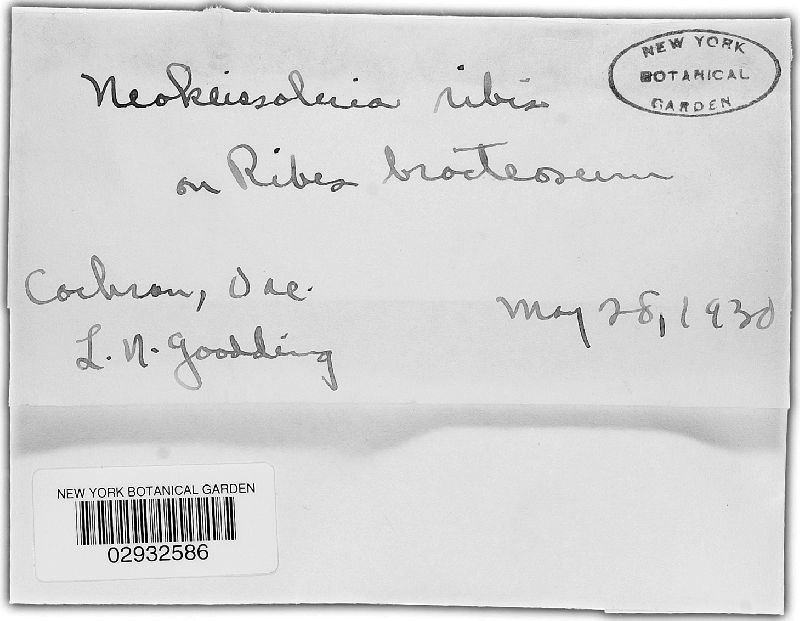 NEW YORK
BOTANICAL
GARDEN
Neokeissoleria ribis
on Ribes bracteosum
Cochran, Ore.
May 28, 1930
L. N. Goodding
NEW YORK BOTANICAL GARDEN
02932586